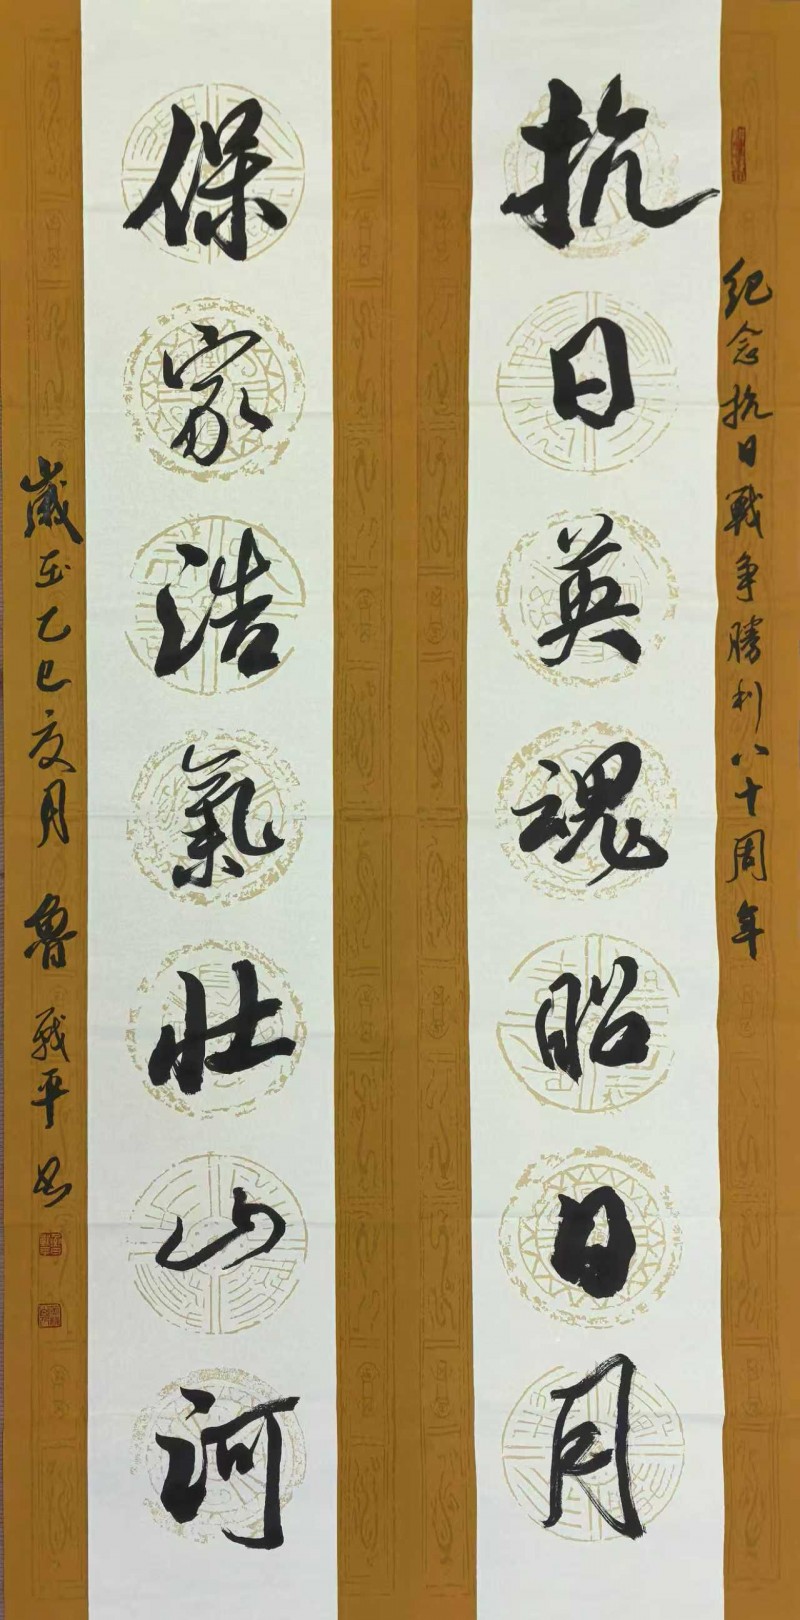 纪念抗日戰争勝利八十周年
抗日英魂昭日月
保家浩氣壮山河
歲在乙巳夏月 魯战平书